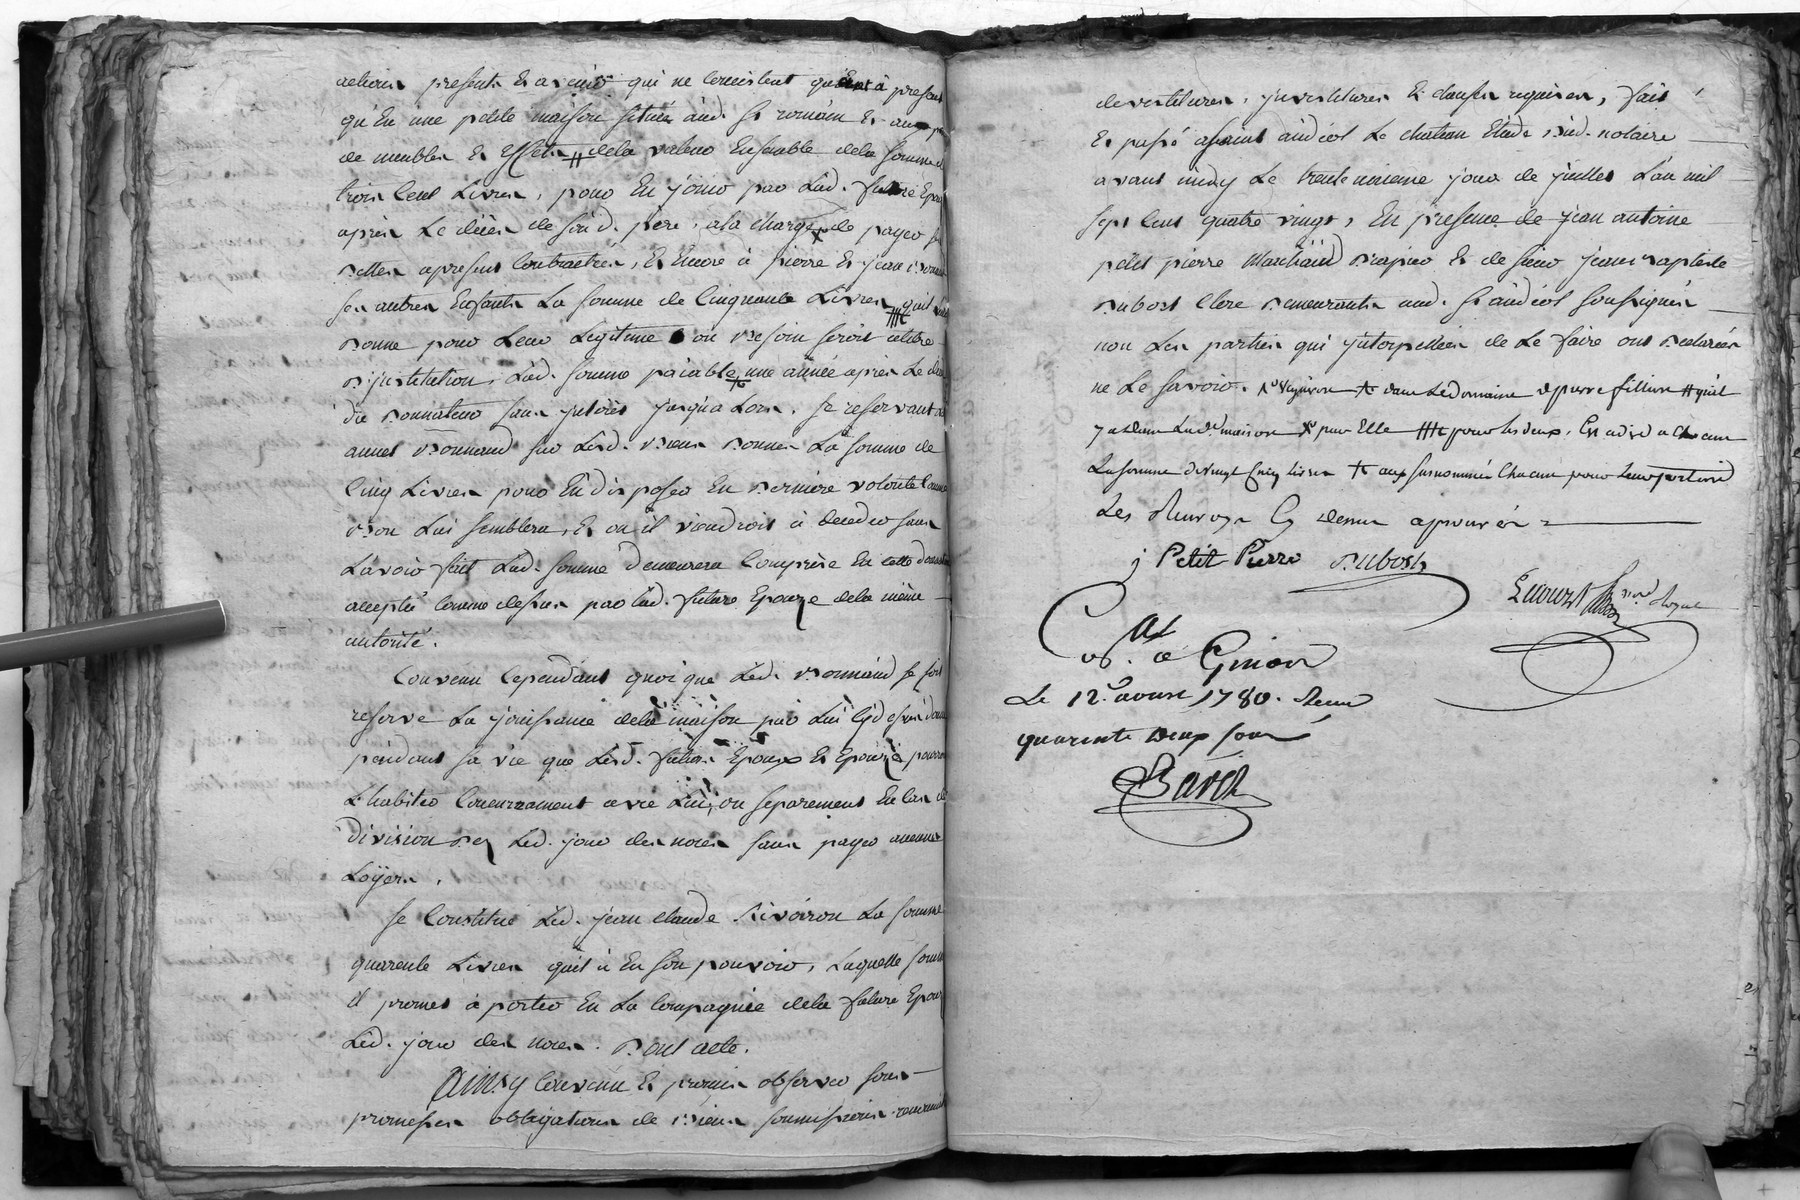 actions presents et avenir qui ne consistent quant à present
qu'en une petite maison située aud. St romain et aux peu
de meubles et effets # de la valeur Ensemble de la somme de
trois cent Livres, pour En jouir par Lad. future Epouze
après Le décès de sond. père, a la charge de payer ses
Dettes apresent Contractées, Et Encore à pierre Et jean Bonnand
ses autres Enfants La somme de Cinquante Livres qu'il
Donne pour Leur Legitime ou Besoin seroit titre
D'institution, Lad. somme païable une année après Le décès
du Donnateur sans interets jusqu'a Lors. se reservant
Bonnand sur Lesd. Biens Donnés La somme de
Cinq Livres pour En disposer En Derniere volonté Comme
Bon Lui semblera, Et ou il viendroit à deceder sans
L'avoir fait Lad. somme demeurera Comprise En cette donation
acceptée comme dessus par Lad. future Epouze de la même
autorité.
Convenu Cependant quoi que Led. Bonnand se soit
reservé La jouissance de la maison par Lui Cydessus donnée
pendant sa vie que Lesd. futurs Epoux Et Epouze pourront
L'habiter Conjointement avec Lui, ou separement En Cas de
division Des Led. jour des noces sans payer aucuns
Loÿers.
Se Constitue Led. jean claude Rivoiron La somme
quarente Livres qu'il à En son pouvoir, Laquelle somme
il promet à porter En La Compagnie de la future Epouze
Led. jour des noces. Dont acte.
Ainsy Convenu Et promis observer sous
promesses obligations de Biens soumissions renonciations
devestitures, investitures Et clauses requises, fait
Et passé a saint andéol Le chateau Etude Dud. notaire
avant midy Le trente unieme jour de juillet L'an mil
sept Cent quatre vingt, En presence de jean antoine
petit pierre Marchand Drapier Et de sieur jean Baptiste
Dubost Clerc Demeurants aud. St andéol soussignés
non Les parties qui interpellées de Le faire ont Declarées
ne Le savoir. + dans Le Domaine de pierre fillion # qu'il
y a dans Lad. maison x pour Elle #### pour Les deux, C'est a dire a Chacun
La somme de vingt Cinq Livres + aux susnommés Chacun pour Leur portion
Les Renvoys Cy dessus aprouvés
j Petit Pierre Dubost
Cté. a Givors
Le 12e. aoust 1780. Reçu
quarente Deux sous